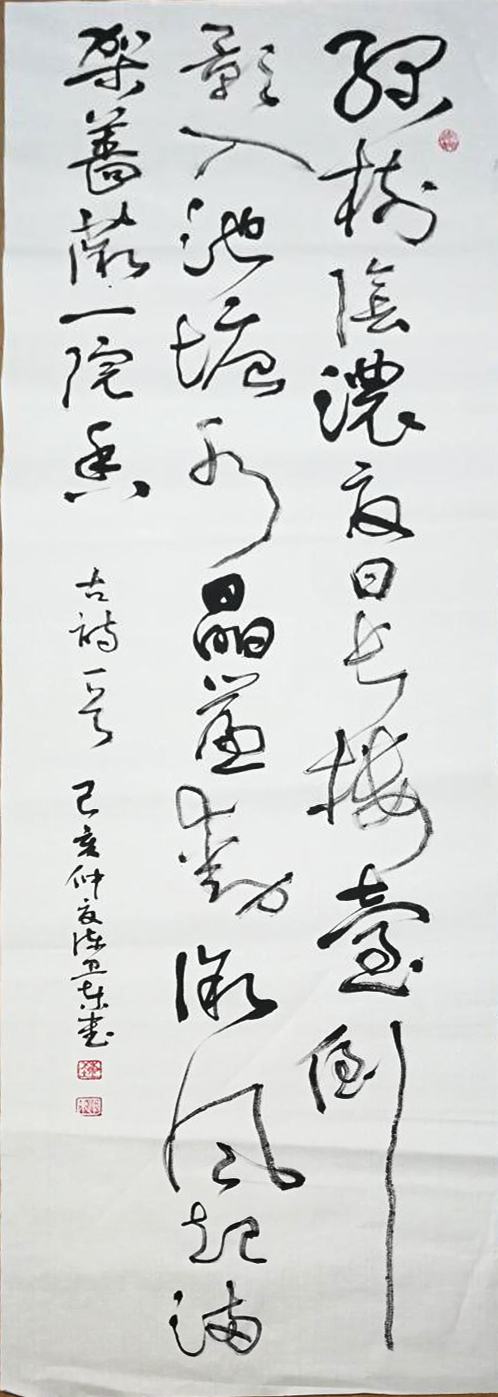 綠樹陰濃夏日長樓臺倒
影入池塘水晶簾動微風起滿
架薔薇一院香
古詩一首 己亥仲夏陳卫東書